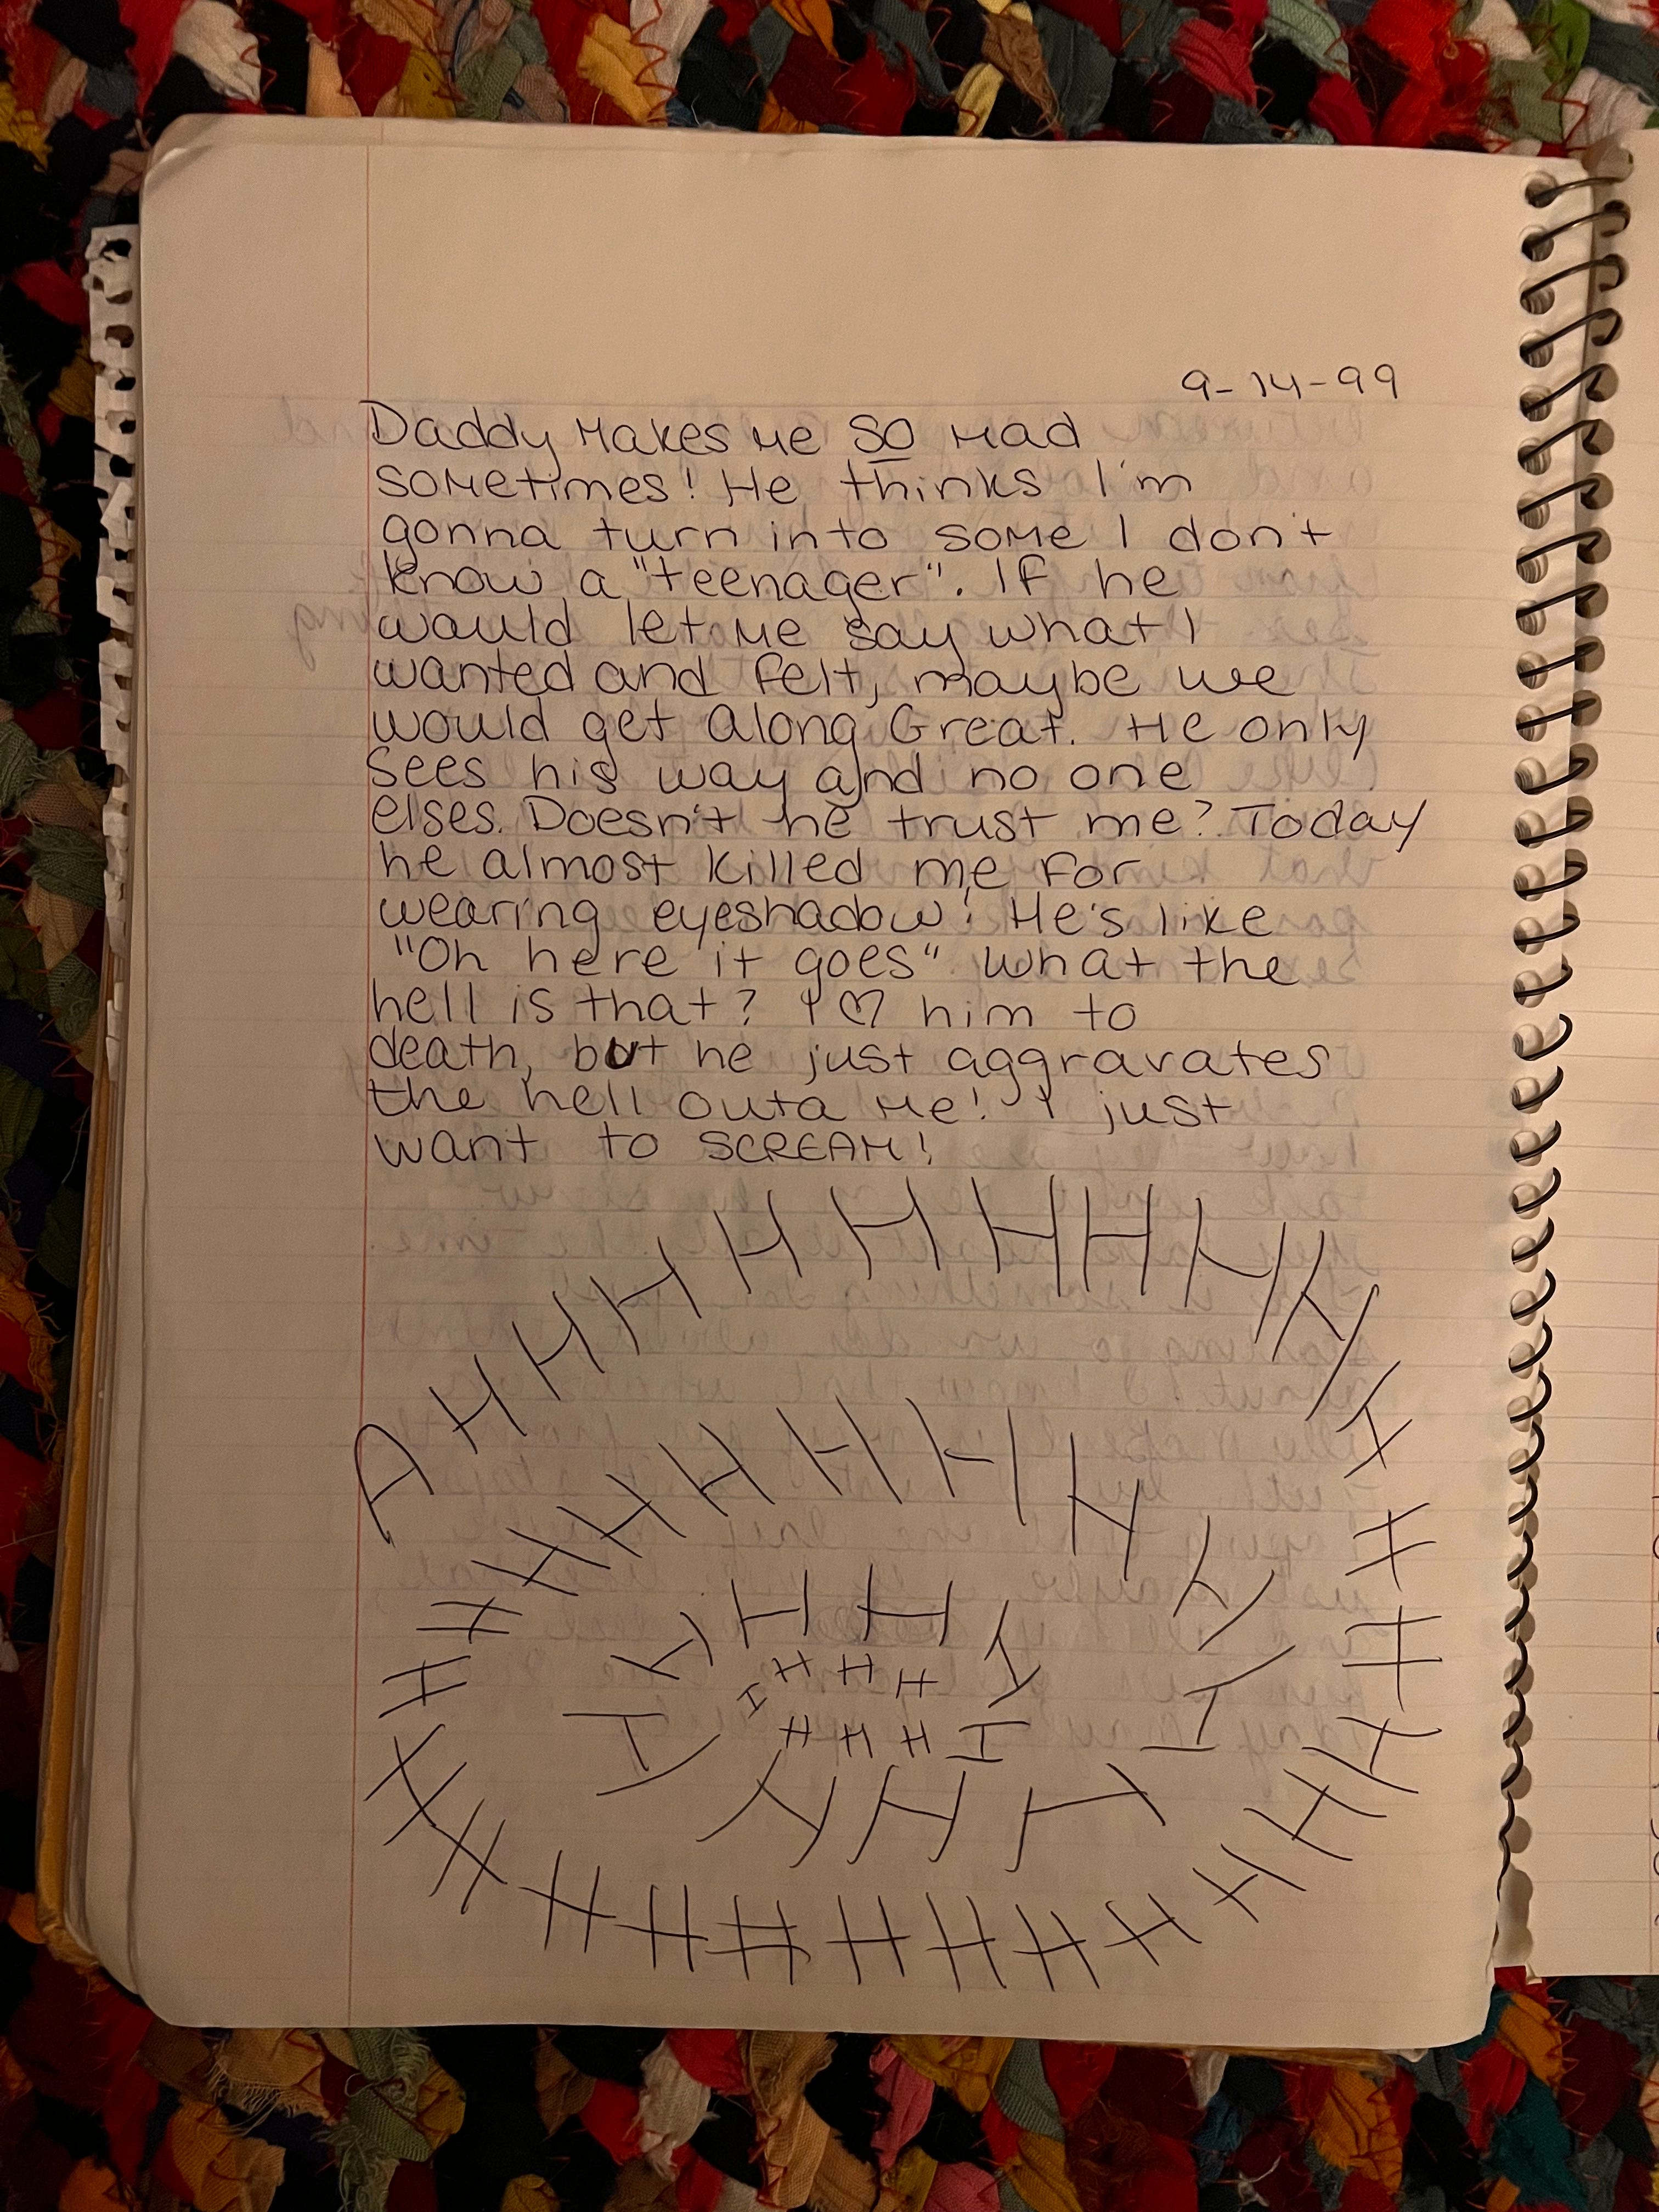 9-14-99
Daddy Makes Me SO Mad
sometimes! He thinks I'm
gonna turn into some I don't
know a "teenager". If he
would let me say what I
wanted and felt, maybe we
would get along Great. He only
sees his way and no one
elses. Doesn't he trust me? Today
he almost killed me for
wearing eyeshadow! He's like
"Oh here it goes" what the
hell is that? I ♡ him to
death, but he just aggravates
the hell outa me! I just
want to SCREAM!
AHHHHHHHHHHHHHHHHHHHHHHHHHHHHHHHHHHHHHHHHHHHHHHHHHHHHHHH